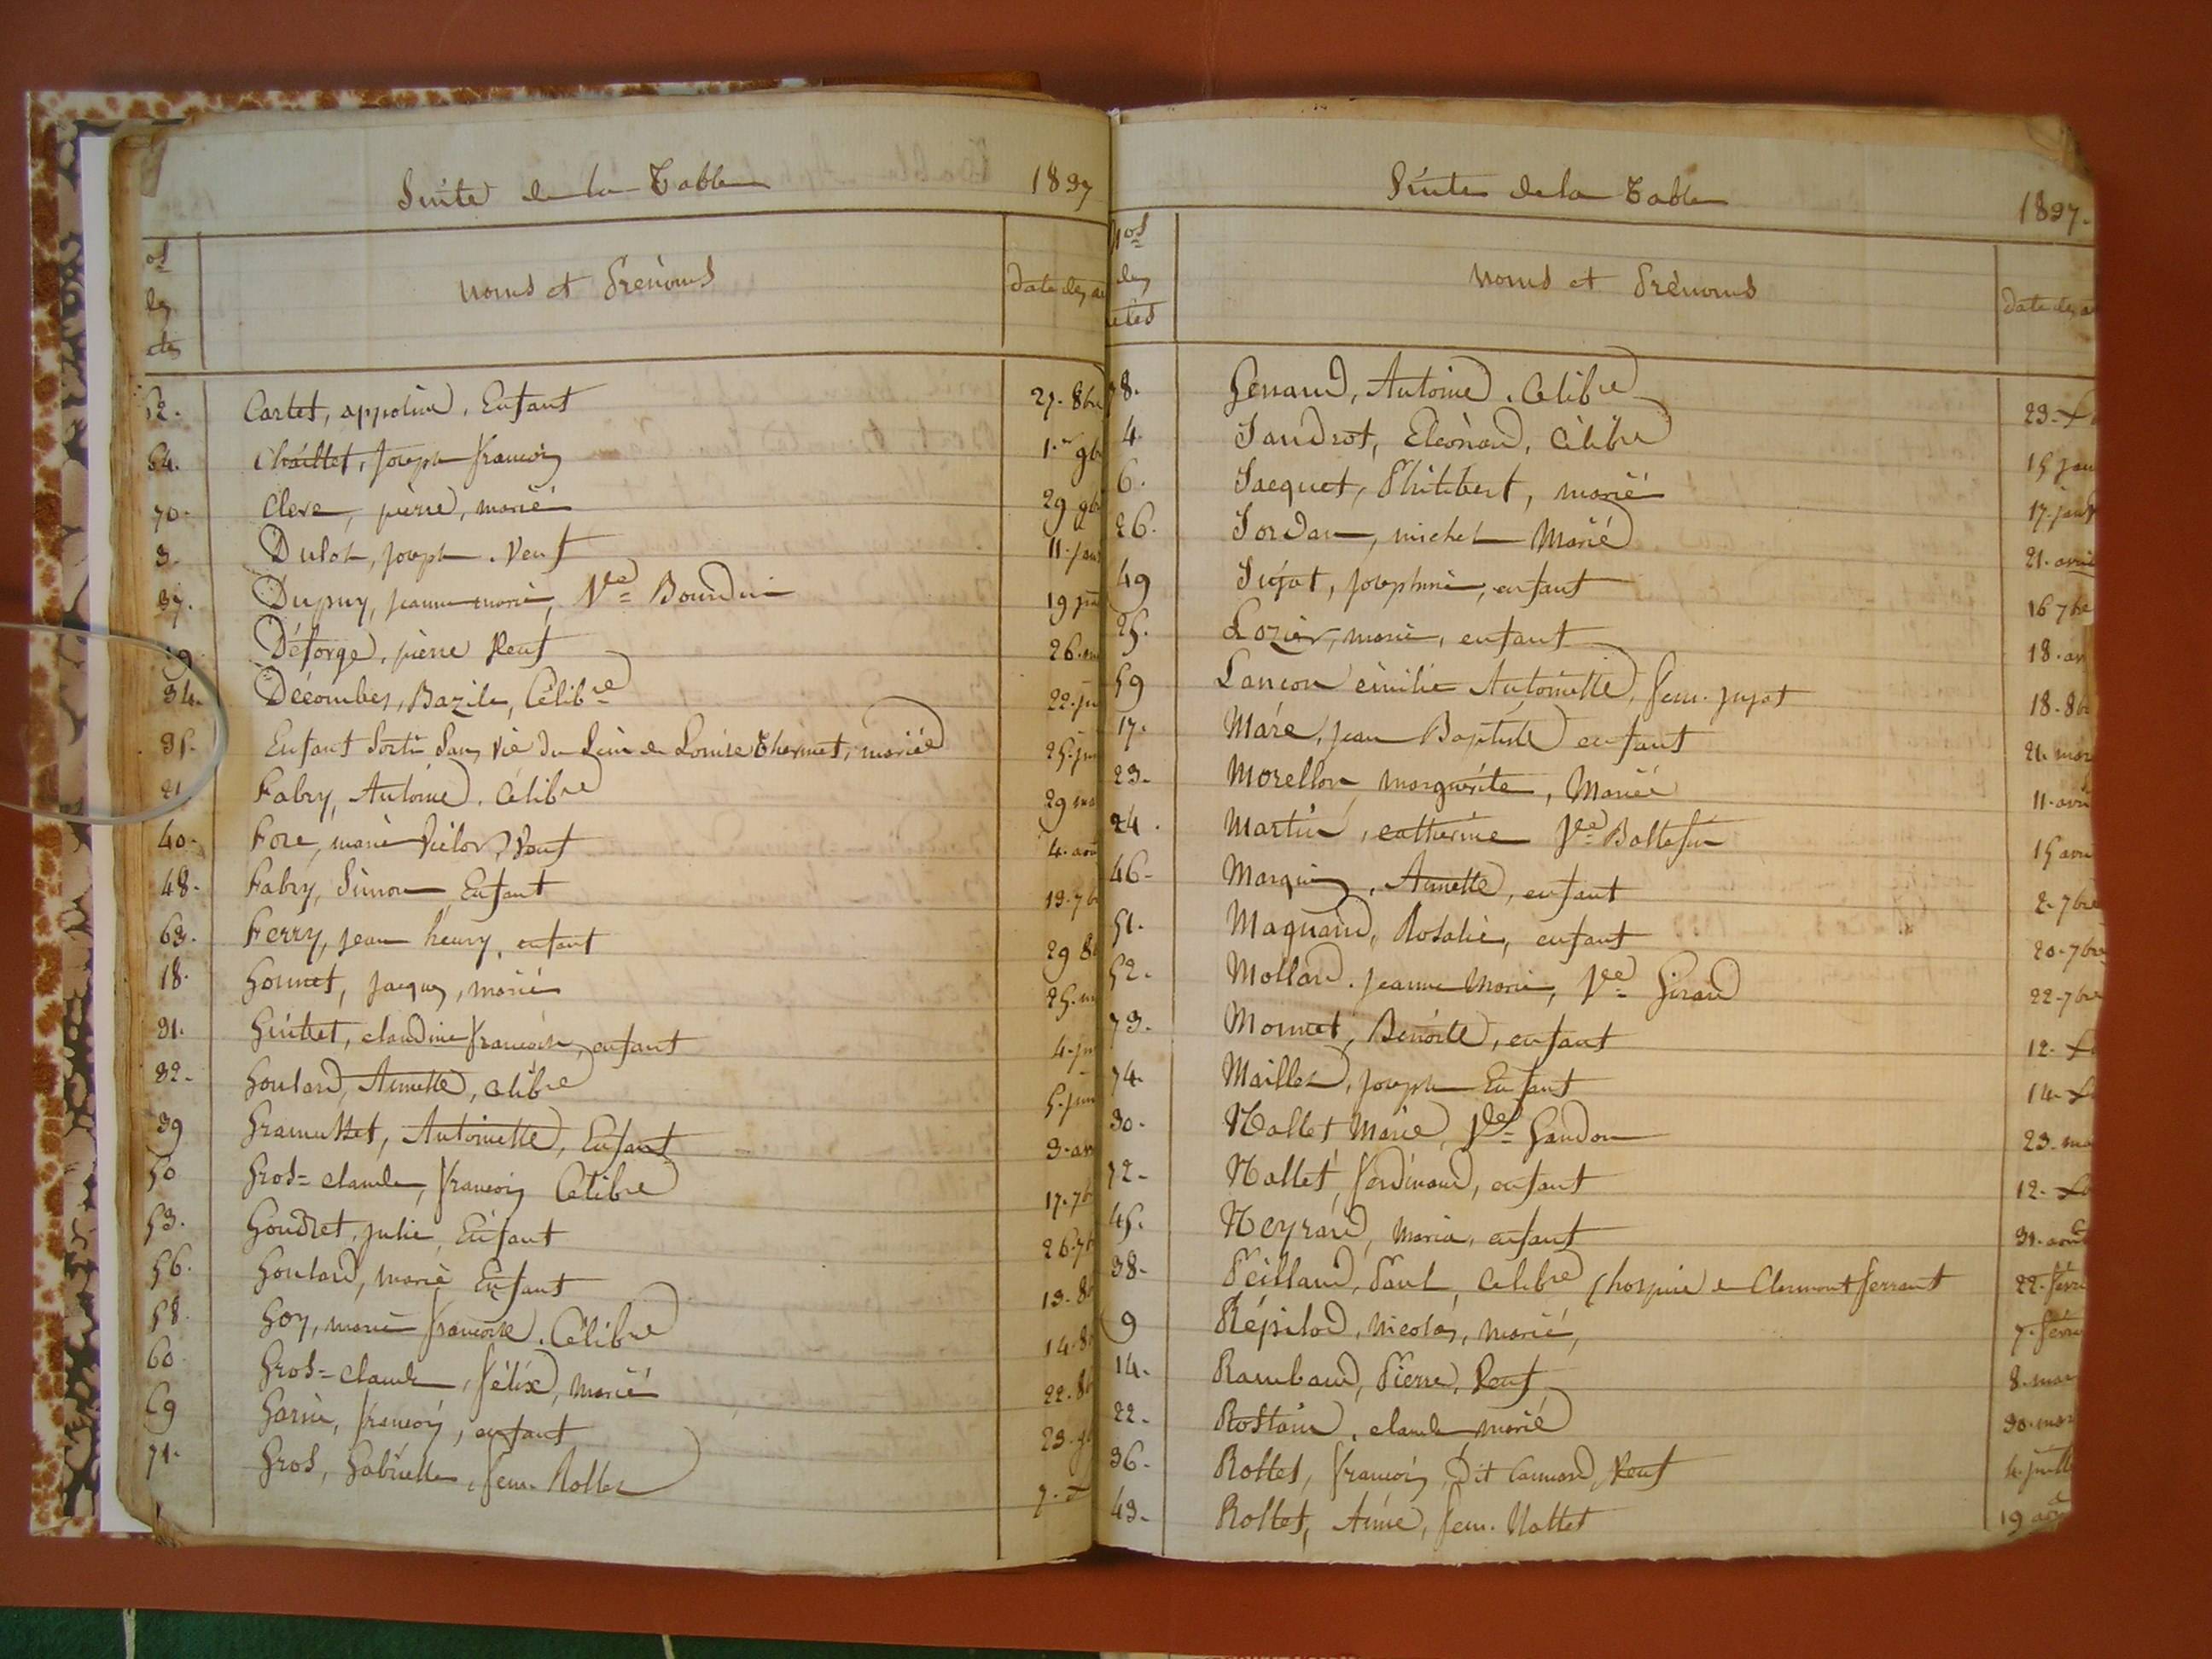 Suite de la Table 1837
os
des
ctes
noms et Prénoms
Date des ac
62. Cartet, appoline, Enfant 27. 8bre
64. Chaillet, Joseph françois 1.er 9b
70. Clere, pierre, marié 29 9b
3. Dulot, joseph. Veuf 11. jan
37. Dupuy, jeanne marie, Ve Bourdin 19 jui
29 Déforge, pierre Veuf 26.
34. Décombes, Bazile, Célibre 22. ju
35. Enfant Sorti Sans vie du Sein de Louise Thermet, mariée 25. jui
21 Fabry, Antoine, Célibre 29 ma
40. Fore, marie Victor, Veuf 4. aoû
48. Fabry, Simon Enfant 13. 7b
63. Ferry, jean henry, enfant 29 8b
18. Gonnet, jacques, marié 25. m
31. Guillet, claudine françoise, enfant 4. jui
32. Goulard, Annette, célibre 5. juin
39 Gramusset, Antoinette, Enfant 3. ao
50 Gros-claude, françois Célibre 17. 7b
53. Goudret, julie, Enfant 26. 7b
56. Goulard, marie Enfant 13. 8b
58. Goy, marie françoise. Célibre 14. 8b
60. Gros-claude, félix, marié 22. 8b
69 Garin, françois, enfant 23. 9b
71. Gros, Gabrielle, fem. Rollet 7.
Suite de la Table 1837.
nos
des
actes
noms et Prénoms
Date des a
78. Genaud, Antoine. Célibre 23.
4. Jandrot, Eléonard, Célibre 15 jan
6. Jacquet, Philibert, marié 17. janv
26. Jordan, michel Marié 21. avril
49 Jujat, josephine, enfant 16 7bre
25. Lozier, marie, enfant 18. av
59 Lançon émilie Antoinette, fem. jujat 18. 8b
17. Mare, jean Baptiste enfant 21. mar
23. Morellon, marguerite, Mariée 11. avri
24. Martin, catherine Ve Boltefin 15 avri
46. Marquis, Annette, enfant 2. 7bre
51. Magnard, Rosalie, enfant 20. 7bre
52. Mollard. jeanne Marie, Ve Girard 22. 7bre
73. Monnet, Benoîte, enfant 12.
74. Maillet, joseph Enfant 14.
30. Nallet Marie, Ve Gandon 23. ma
72. Nallet, ferdinand, enfant 12.
45. Neyrard, maria, enfant 31. août
38. Peillaud, Paul, Célibre (hospice de Clermont ferrant 22. févri
9 Répilod, nicolas, marié, 7. févri
14. Rambaud, Pierre, Veuf 8. mar
22. Rostain, claude marié 30. mar
36. Rollet, françois, Dit Cannard, Veuf 4. juille
43. Rollet, Aimé, fem. Nallet 19 aoû